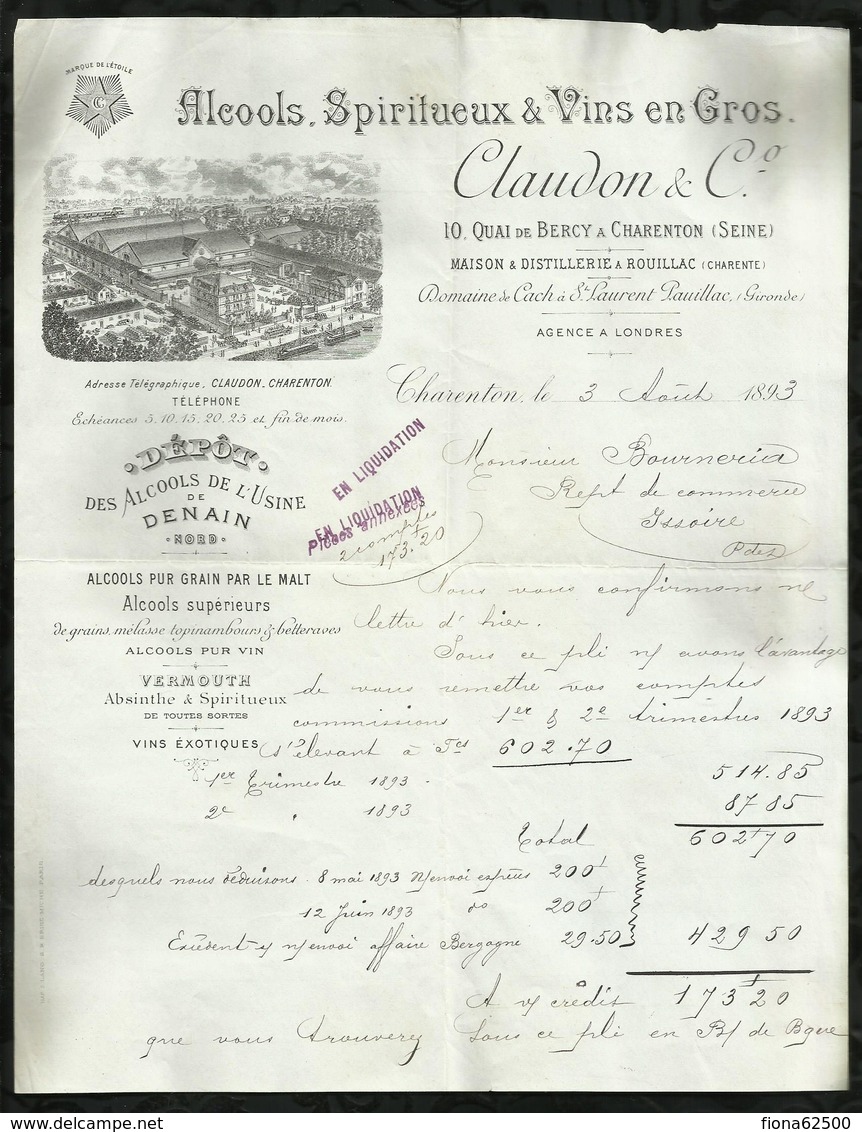 MARQUE DE L'ÉTOILE
CC
Alcools, Spiritueux & Vins en Gros.
Claudon & Co.
10, QUAI DE BERCY A CHARENTON (SEINE)
MAISON & DISTILLERIE A ROUILLAC (CHARENTE)
Domaine de Cach à St. Laurent Pauillac, (Gironde)
AGENCE A LONDRES
Adresse Télégraphique, CLAUDON_CHARENTON.
TÉLÉPHONE
Echéances 5, 10, 15, 20, 25 et fin de mois.
DÉPÔT
DES ALCOOLS DE L'USINE
DE
DENAIN
NORD
ALCOOLS PUR GRAIN PAR LE MALT
Alcools supérieurs
de grains, mélasse topinambours & betteraves
ALCOOLS PUR VIN
VERMOUTH
Absinthe & Spiritueux
DE TOUTES SORTES
VINS ÉXOTIQUES
Charenton, le 3 Août 1893
EN LIQUIDATION
EN LIQUIDATION
Pièces annexées
2 comptes
173.20
Monsieur Bourneria
Repst de commerce
Issoire
P de D
Nous vous confirmons n/
lettre d'hier.
Sous ce pli n/ avons l'avantage
de vous remettre vos comptes
commissions 1er & 2e trimestres 1893
s'élevant à Fcs 602.70
1er Trimestre 1893 514.85
2e " 1893 87 85
Total 602 70
desquels nous déduisons 8 mai 1893 N/envoi espèces 200
12 Juin 1893 do 200
Excédent s/ n/envoi affaire Bergogne 29.50 429 50
A v/ crédit 173 20
que vous trouverez sous ce pli en B/ de Bque
delcampe.net
fiona62500